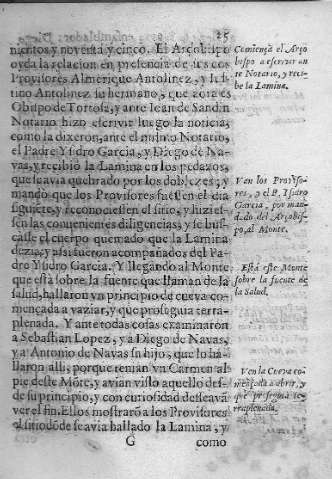 25
nientos y noventa y cinco. El Arçobispo
oyda la relacion en presencia de sus dos
Provisores Almerique Antolinez, y Ius
tino Antolinez su hermano, que aora es
Obispo de Tortosa, y ante Iuan de Sandin
Notario hizo escrivir luego la noticia,
como la dixeron, ante el mismo Notario,
el Padre Ysidro Garcia, y Diego de Na-
vas, y recibiò la Lamina en los pedazos,
que se avia quebrado por los doblezes; y
mandò que los Provisores fuessen el dia
siguiẽte, y reconociessen el sitio, y hiziess-
sen las convenientes diligencias; y se bus-
casse el cuerpo quemado que la Lamina
dezia, y assi fueron acompañados del Pa-
dre Ysidro Garcia. Y llegando al Monte
que està sobre la fuente que llaman de la
salud, hallaron vn principio de cueva co-
mençada a vaziar, y que proseguia terra-
plenada. Y ante todas cosas examinaron
a Sebastian Lopez, y a Diego de Navas,
y a Antonio de Navas su hijo, que los ha-
llaron alli; porque tenian vn Carmen al
pie deste Mõte, y avian visto aquello des-
de su principio, y con curiosidad desseavã
ver el fin. Ellos mostrarõ a los Provisores
el sitio dõde se avia hallado la Lamina, y
G
como
Comiença el Arço
bispo a escrivir an
te Notario, y reci-
be la Lamina.
Van los Proviso-
res, y el P. Ysidro
Garcia, por man-
dado del Arçobis-
po, al Monte.
Està este Monte
sobre la fuente de
la Salud.
Van la Cueva co
mẽçada a abrir, y
que prosiguia te-
rraplenada.